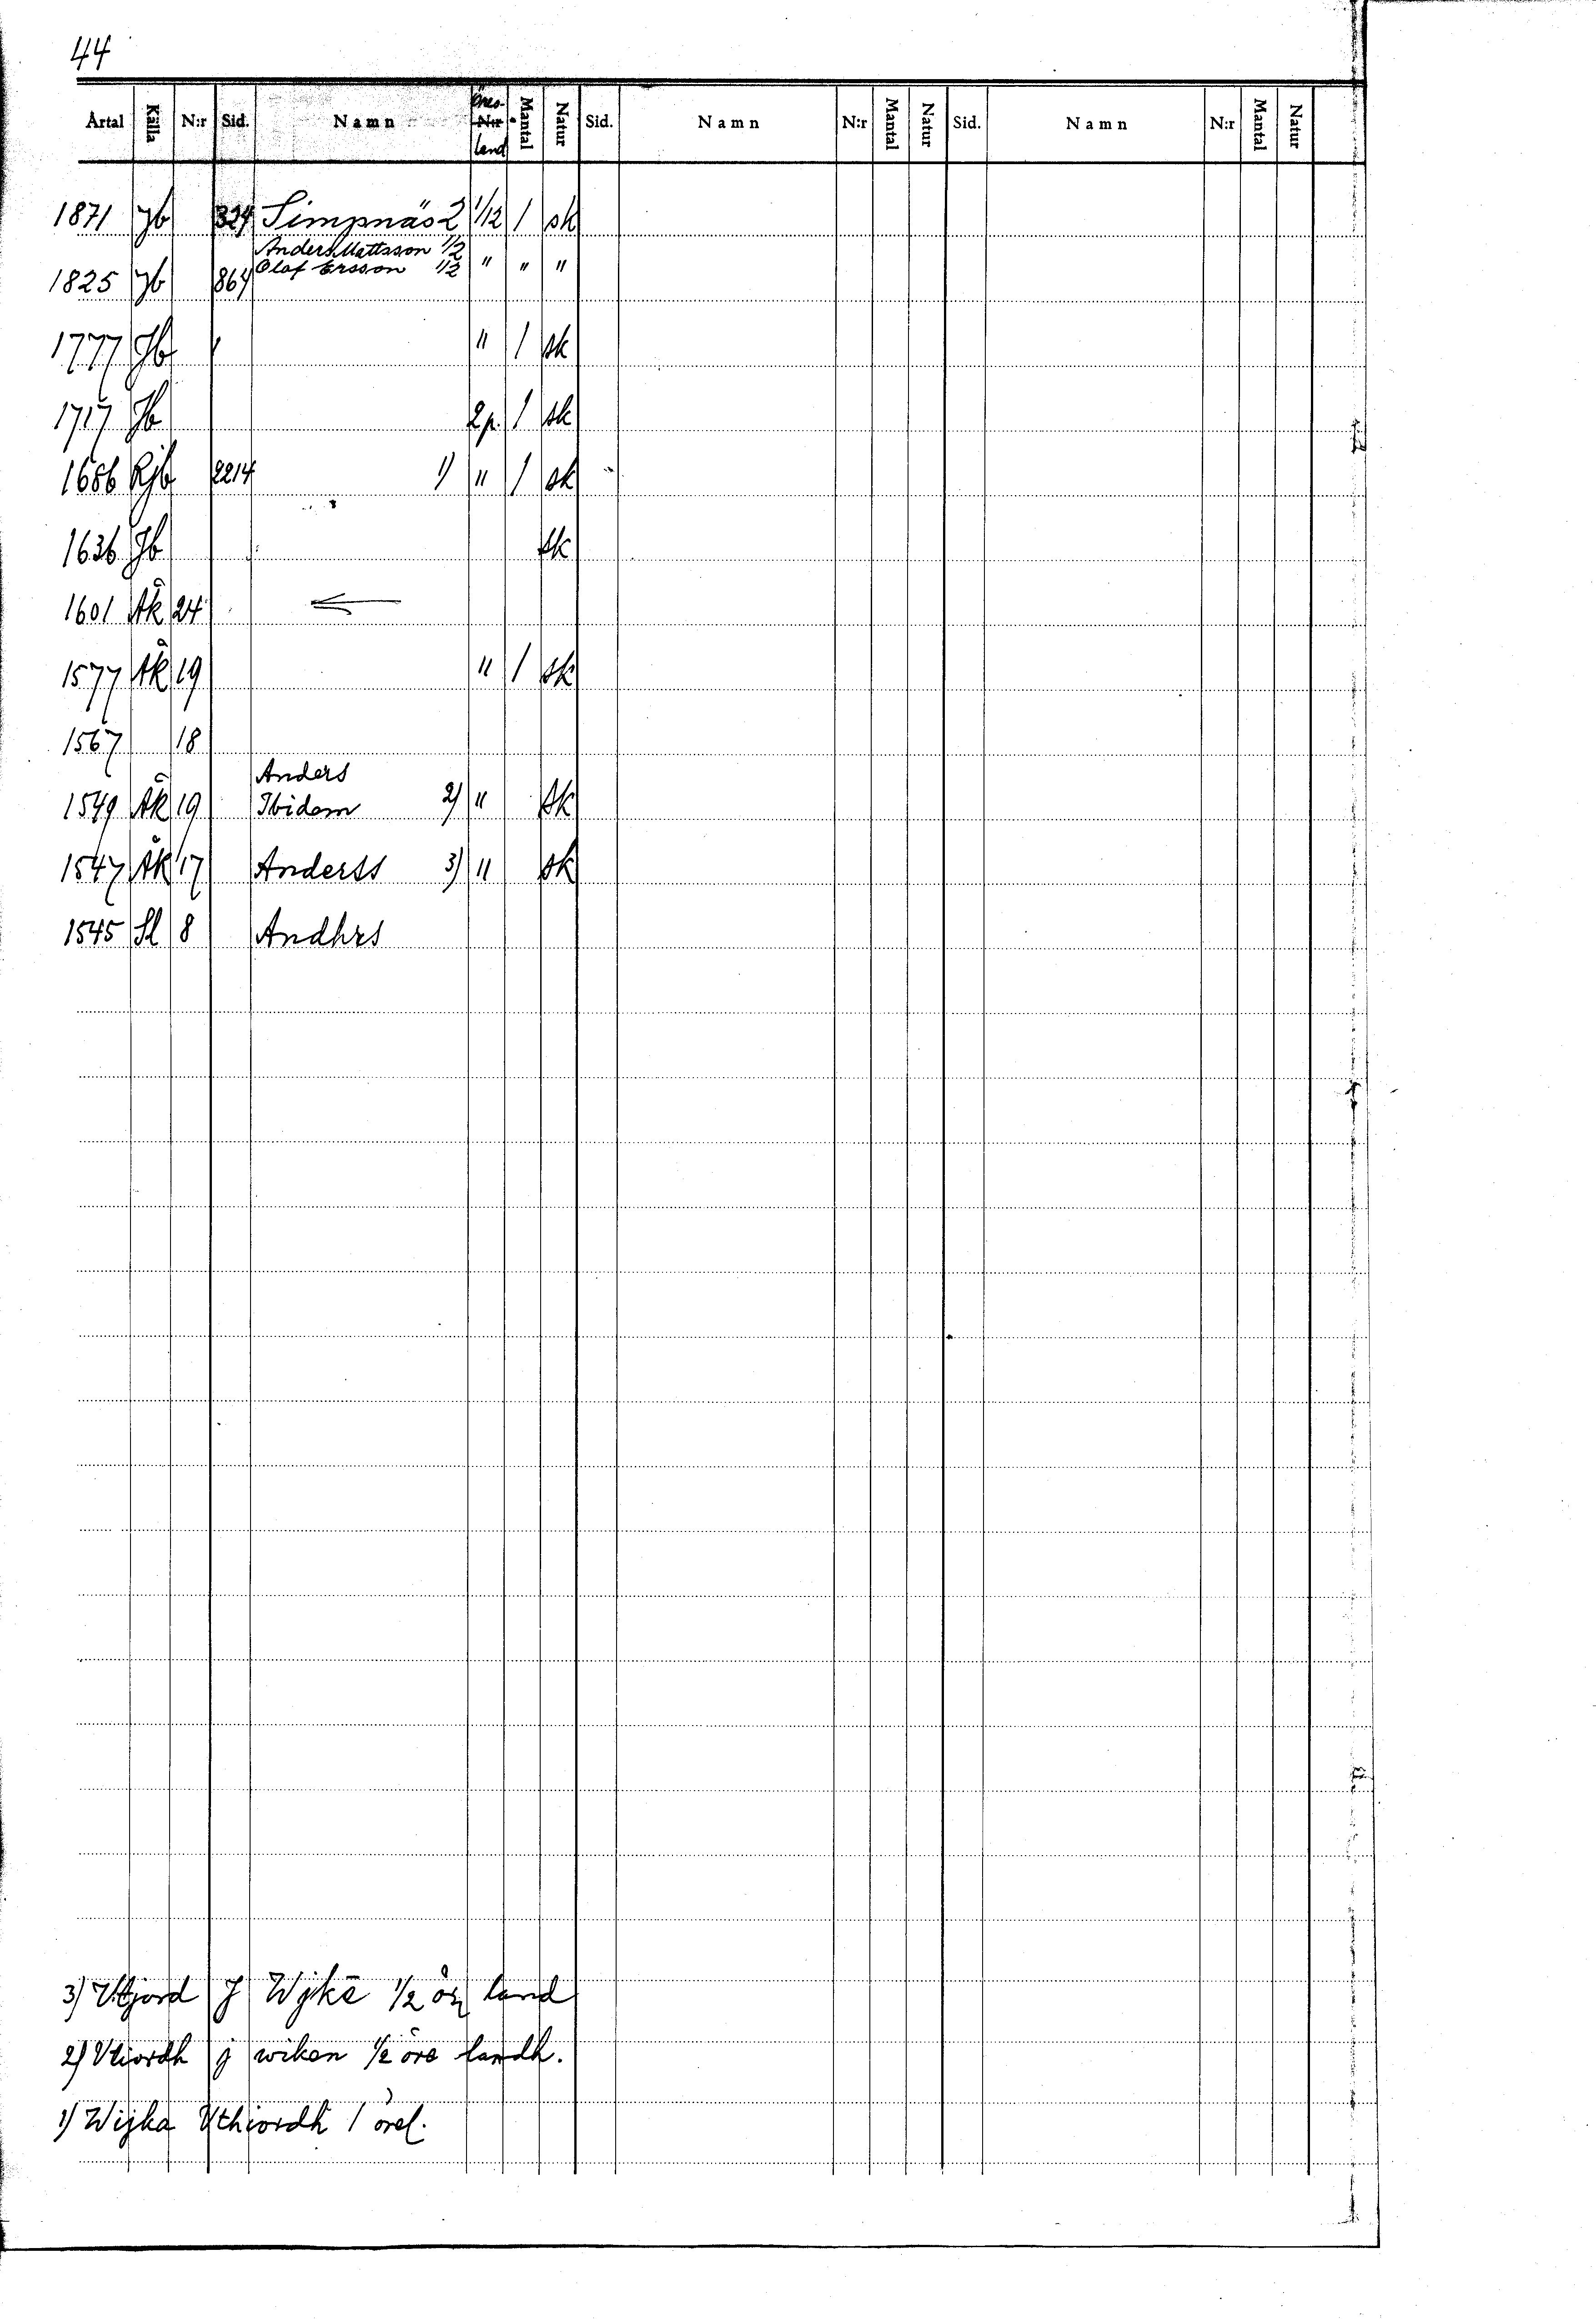 44
Årtal Källa N:r Sid. Namn Öres- N:r land Mantal Natur Sid. Namn N:r Mantal Natur Sid. Namn N:r Mantal Natur
1871 Jb 324 Simpnäs 2 1/12 1 sk
Anders Mattsson 1/2
1825 Jb 864 Olof Ersson 1/2 " " "
1777 Jb " 1 sk
1717 Jb 2 p. 1 sk
1686 Rjb 2214 1) " 1 sk
1636 Jb sk
1601 Åk 24
1577 Åk 19 " 1 sk
1567 18
Anders
1549 Åk 19 Ibidem 2) " sk
1547 Åk 17 Anderss 3) " sk
1545 Sl 8 Andhrs
3) Vtjord J Wjkē 1/2 land
2) Vtiordh j wiken 1/2 öre landh.
1) Wijka Vthiordh 1 örel.